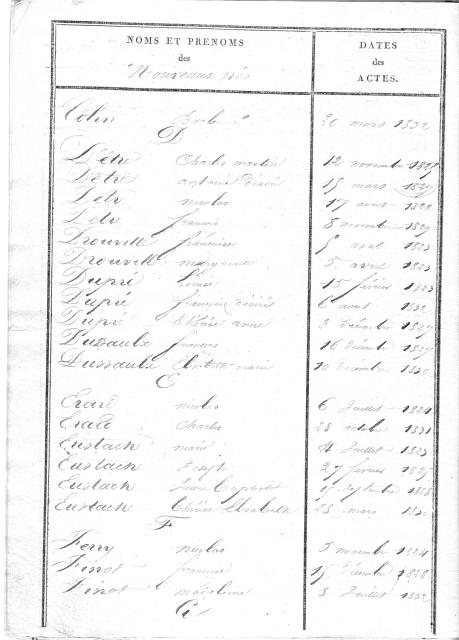 NOMS ET PRENOMS
des
Nouveaux nés
DATES
des
ACTES.
Colin Barbe 20 mars 1832
D
Détré Charles martin 12 novembre 1827
Détré antoine désiré 15 mars 1829
Detr nicolas 17 aout 1828
Detr francois 8 novembre 1829
Drouville francoise avril 1823
Drouville marguerite 5 avril 1823
Dupré Louise 15 février 1823
Dupré francois désiré 6 aout 1832
Dupré thérèse anne 3 décembre 1827
Dussaulx francois 16 décembre 1827
Dussaulx Elisabeth marie 10 décembre 1830
E
Erard nicolas 6 Juillet 1824
Erard Charles 28 octobre 1831
Eustache marie 4 Juillet 1823
Eustache Joseph 27 février 1825
Eustache septembre 1828
Eustache Thérèse Elisabeth 25 mars 1830
F
Ferry nicolas 5 novembre 1824
Finot francoise 15 décembre 1828
Finot madeleine 3 Juillet 1832
G